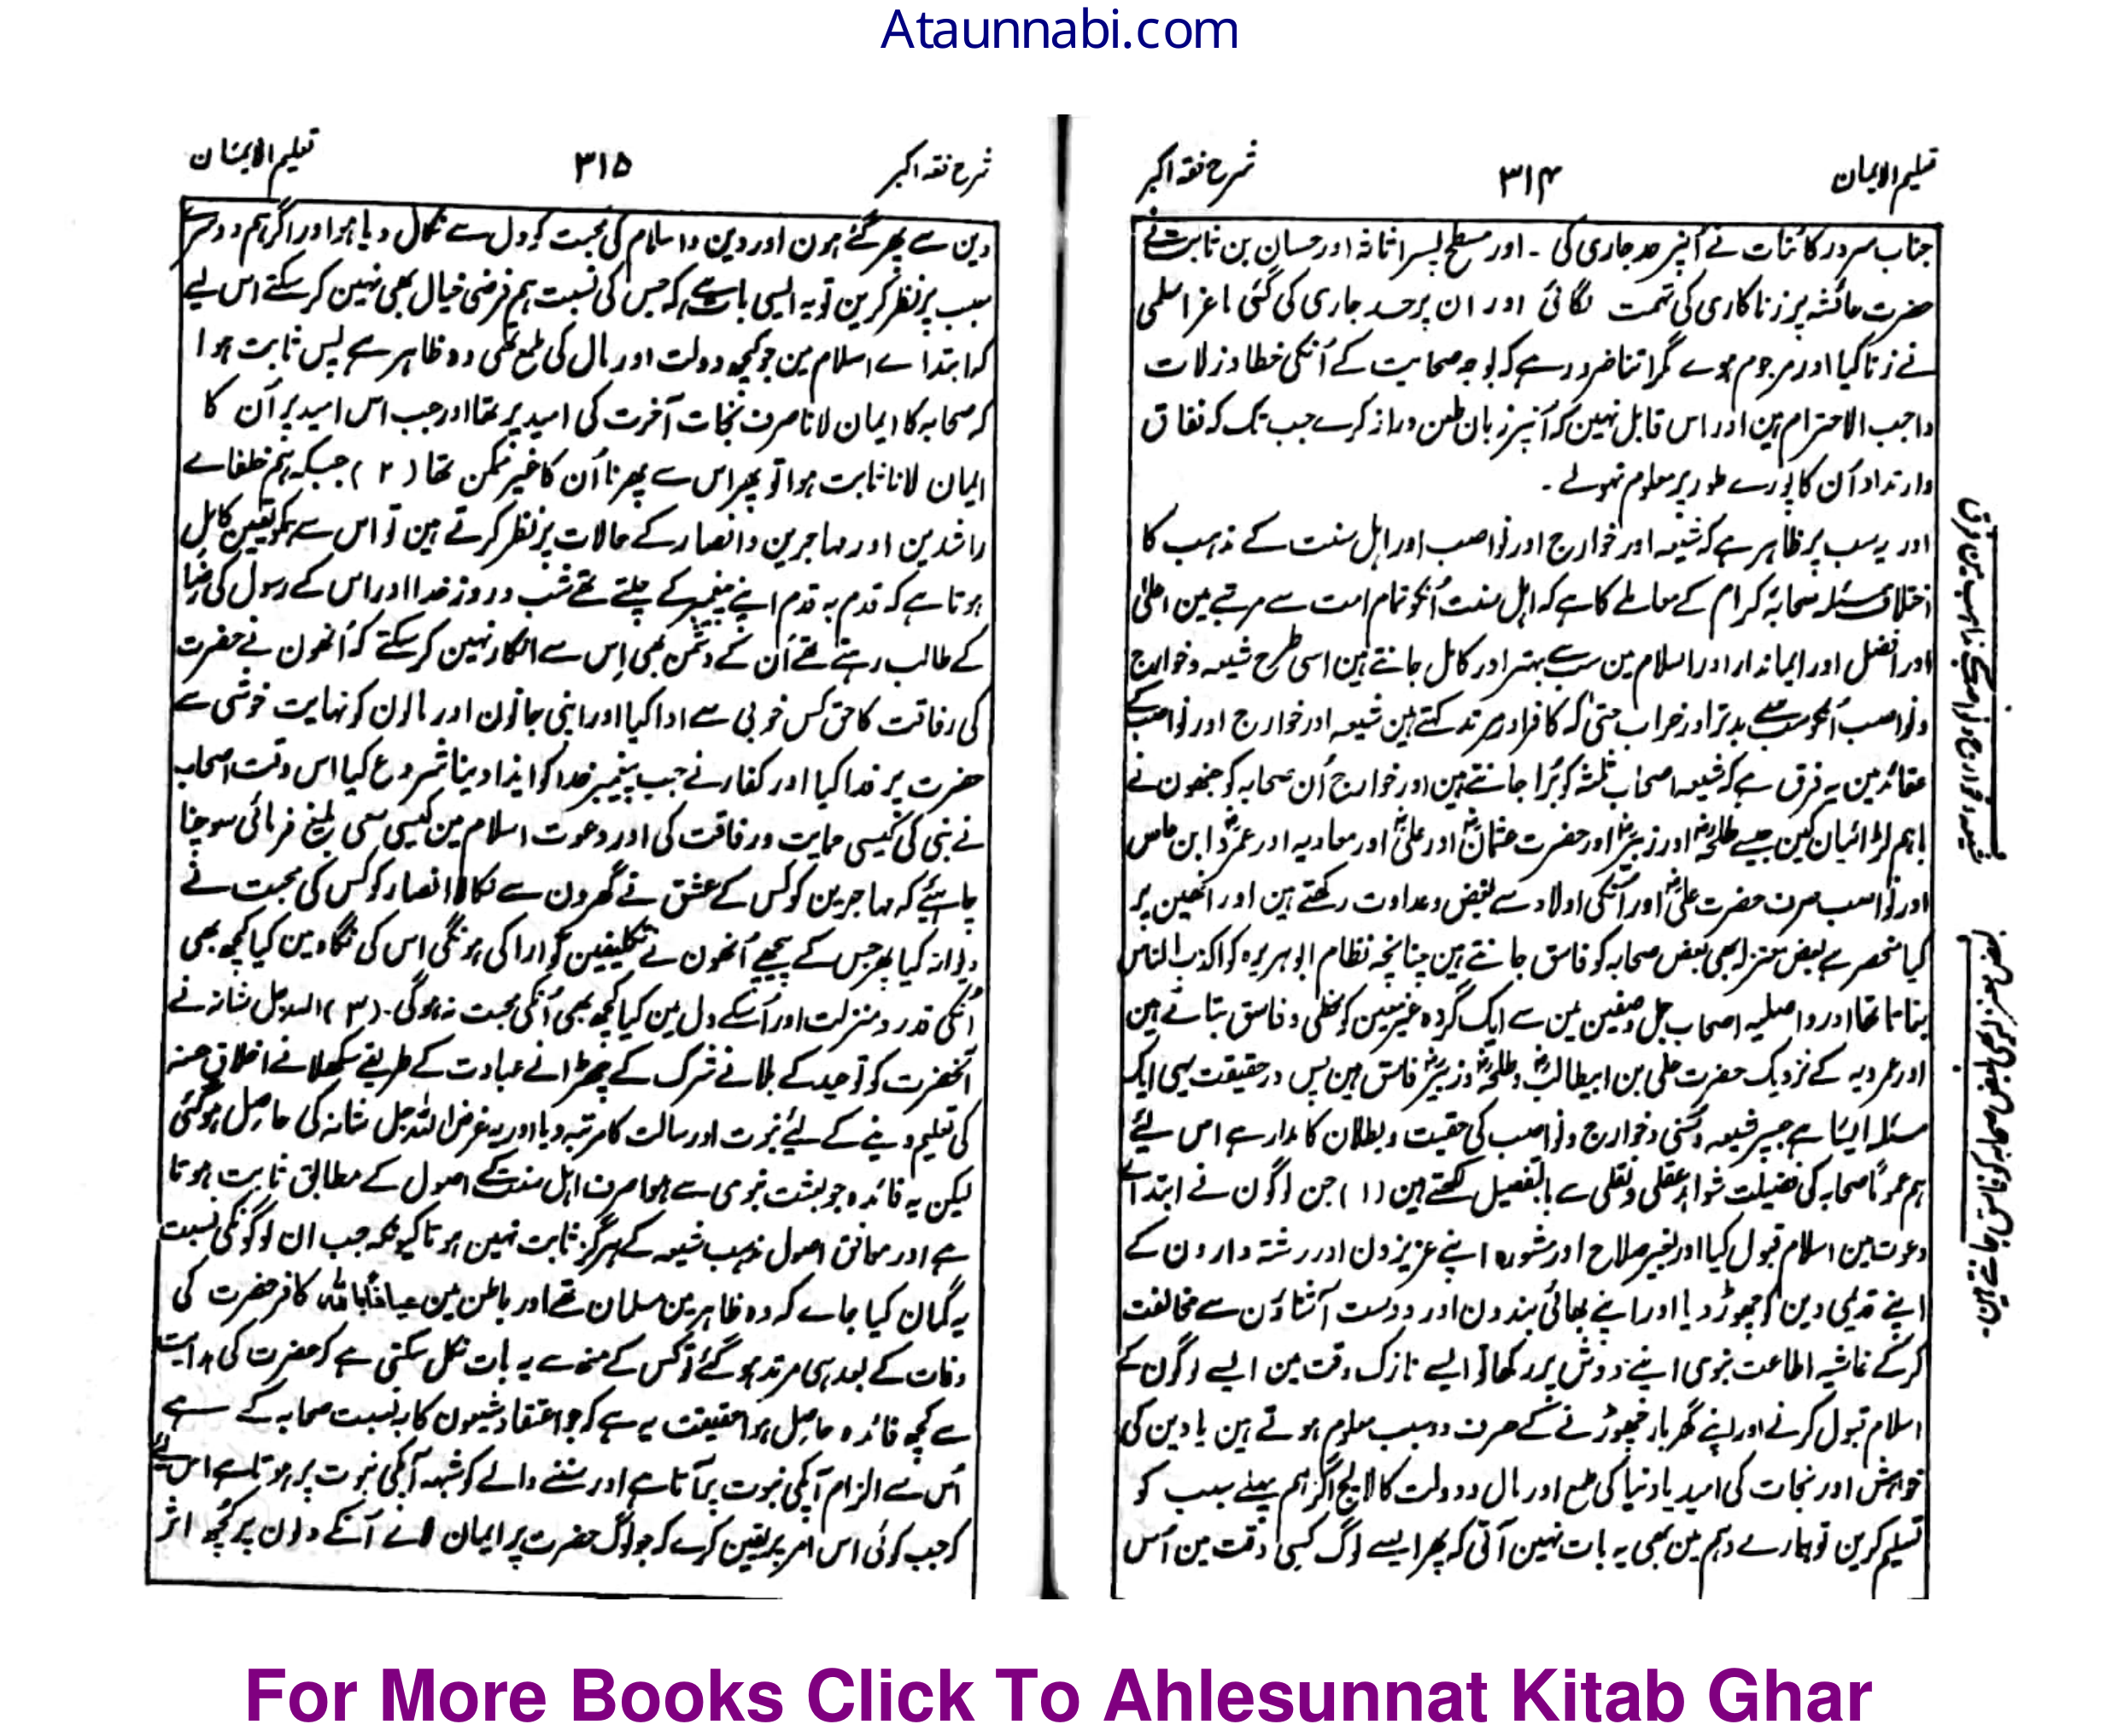 Ataunnabi.com
تعلیم الایمان ۳۱۴ شرح فقہ اکبر
جناب سرور کائنات نے اُنپر حد جاری کی ۔ اور مسطح پسر اثاثہ اور حسان بن ثابت نے
حضرت عائشہ پر زناکاری کی تہمت لگائی اور ان پر حد جاری کی گئی ماعز اسلمی
نے زنا کیا اور مرجوم ہوے مگر اتنا ضرور ہے کہ بوجہ صحابیت کے اُنکی خطا و زلات
واجب الاحترام ہین اور اس قابل نہین کہ اُنپر زبان طعن دراز کرے جب تک کہ نفاق
و ارتداد اُن کا پورے طور پر معلوم نہولے ۔
اور یہ سب پر ظاہر ہے کہ شیعہ اور خوارج اور نواصب اور اہل سنت کے مذہب کا
اختلاف مسئلہ صحابۂ کرام کے معاملے کا ہے کہ اہل سنت اُنکو تمام امت سے مرتبے مین اعلیٰ
اور افضل اور ایماندار اور اسلام مین سب سے بہتر اور کامل جانتے ہین اسی طرح شیعہ و خوارج
و نواصب اُنکو سب سے بدتر اور خراب حتیٰ کہ کافر اور مرتد کہتے ہین شیعہ اور خوارج اور نواصب کے
عقائد مین یہ فرق ہے کہ شیعہ اصحاب ثلثہ کو بُرا جانتے ہین اور خوارج اُن صحابہ کو جنھون نے
باہم لڑائیان کین جیسے طلحہؓ اور زبیرؓ اور حضرت عثمانؓ اور علیؓ اور معاویہ اور عمروؓ ابن عاص
اور نواصب صرف حضرت علیؓ اور اُنکی اولاد سے بغض و عداوت رکھتے ہین اور انھین پر
کیا منحصر ہے بعض معتزلہ بھی بعض صحابہ کو فاسق جانتے ہین چنانچہ نظام ابوہریرہ کو اکذب الناس
بتاتا تھا اور واصلیہ اصحاب جمل و صفین مین سے ایک گروہ غیر معین کو مخطی و فاسق بتاتے ہین
اور عمرویہ کے نزدیک حضرت علی بن ابیطالبؓ و طلحہؓ و زبیرؓ فاسق ہین پس درحقیقت یہی ایک
مسئلہ ایسا ہے جسپر شیعہ و سنی و خوارج و نواصب کی حقیت و بطلان کا مدار ہے اس لئے
ہم عموماً صحابہ کی فضیلت شواہد عقلی و نقلی سے بالتفصیل لکھتے ہین (۱) جن لوگون نے ابتداے
دعوت مین اسلام قبول کیا اور بغیر صلاح اور مشورہ اپنے عزیزون اور رشتہ دارون کے
اپنے قدیمی دین کو چھوڑ دیا اور اپنے بھائی بندون اور دوست آشناؤن سے مخالفت
کرکے غاشیہ اطاعت نبوی اپنے دوش پر رکھا تو ایسے نازک وقت مین ایسے لوگون کے
اسلام قبول کرنے اور اپنے گھر بار چھوڑنے کے صرف دو سبب معلوم ہوتے ہین یا دین کی
خواہش اور نجات کی امید یا دنیا کی طمع اور مال و دولت کا لالچ اگر ہم پہلے سبب کو
تسلیم کرین تو ہمارے وہم مین بھی یہ بات نہین آتی کہ پھر ایسے لوگ کسی وقت مین اُس
شیعہ و خوارج و نواصب کے مذاہب مین فرق
تعلیم الایمان ۳۱۵ شرح فقہ اکبر
دین سے پھر گئے ہون اور دین و اسلام کی محبت کو دل سے نکال دیا ہو اور اگر ہم دوسرے
سبب پر نظر کرین تو یہ ایسی بات ہے کہ جس کی نسبت ہم فرضی خیال بھی نہین کرسکتے اس لیے
کہ ابتداے اسلام مین جو کچھ دولت اور مال کی طمع تھی وہ ظاہر ہے پس ثابت ہوا
کہ صحابہ کا ایمان لانا صرف نجات آخرت کی امید پر تھا اور جب اس امید پر اُن کا
ایمان لانا ثابت ہوا تو پھر اس سے پھرنا اُن کا غیر ممکن تھا (۲) جبکہ ہم خلفاے
راشدین اور مہاجرین و انصار کے حالات پر نظر کرتے ہین تو اس سے ہمکو یقین کامل
ہوتا ہے کہ قدم بہ قدم اپنے پیغمبر کے چلتے تھے شب و روز خدا اور اس کے رسول کی رضا
کے طالب رہتے تھے اُن کے دشمن بھی اِس سے انکار نہین کرسکتے کہ اُنھون نے حضرت
کی رفاقت کا حق کس خوبی سے ادا کیا اور اپنی جانون اور مالون کو نہایت خوشی سے
حضرت پر فدا کیا اور کفار نے جب پیغمبر خدا کو ایذا دینا شروع کیا اس وقت اصحاب
نے نبی کی کیسی حمایت و رفاقت کی اور دعوت اسلام مین کیسی سعی بلیغ فرمائی سوچنا
چاہیئے کہ مہاجرین کو کس کے عشق نے گھرون سے نکالا انصار کو کس کی محبت نے
دیوانہ کیا پھر جس کے پیچھے اُنھون نے تکلیفین گوارا کی ہونگی اس کی نگاہ مین کیا کچھ بھی
اُنکی قدر و منزلت اور اُسکے دل مین کیا کچھ بھی اُنکی محبت نہ ہوگی ۔ (۳) اللہ جل شانہ نے
آنحضرت کو توحید کے بلانے شرک کے چھڑانے عبادت کے طریقے سکھلانے اخلاق حسنہ
کی تعلیم دینے کے لیئے نبوت اور رسالت کا مرتبہ دیا اور یہ غرض اللہ جل شانہ کی حاصل ہوگئی
لیکن یہ فائدہ جو بعثت نبوی سے ہوا صرف اہل سنت کے اصول کے مطابق ثابت ہوتا
ہے اور موافق اصول مذہب شیعہ کے ہرگز ثابت نہین ہوتا کیونکہ جب ان لوگونکی نسبت
یہ گمان کیا جاے کہ وہ ظاہر مین مسلمان تھے اور باطن مین عیاذًا باللہ کافر حضرت کی
وفات کے بعد ہی مرتد ہوگئے تو کس کے منھ سے یہ بات نکل سکتی ہے کہ حضرت کی ہدایت
سے کچھ فائدہ حاصل ہوا حقیقت یہ ہے کہ جو اعتقاد شیعون کا بہ نسبت صحابہ کے ہے
اُس سے الزام آپکی نبوت پر آتا ہے اور سننے والے کو شبہہ آپکی نبوت پر ہوتا ہے اس لیے
کہ جب کوئی اس امر پر یقین کرے کہ جو لوگ حضرت پر ایمان لاے اُنکے دلون پر کچھ اثر
For More Books Click To Ahlesunnat Kitab Ghar